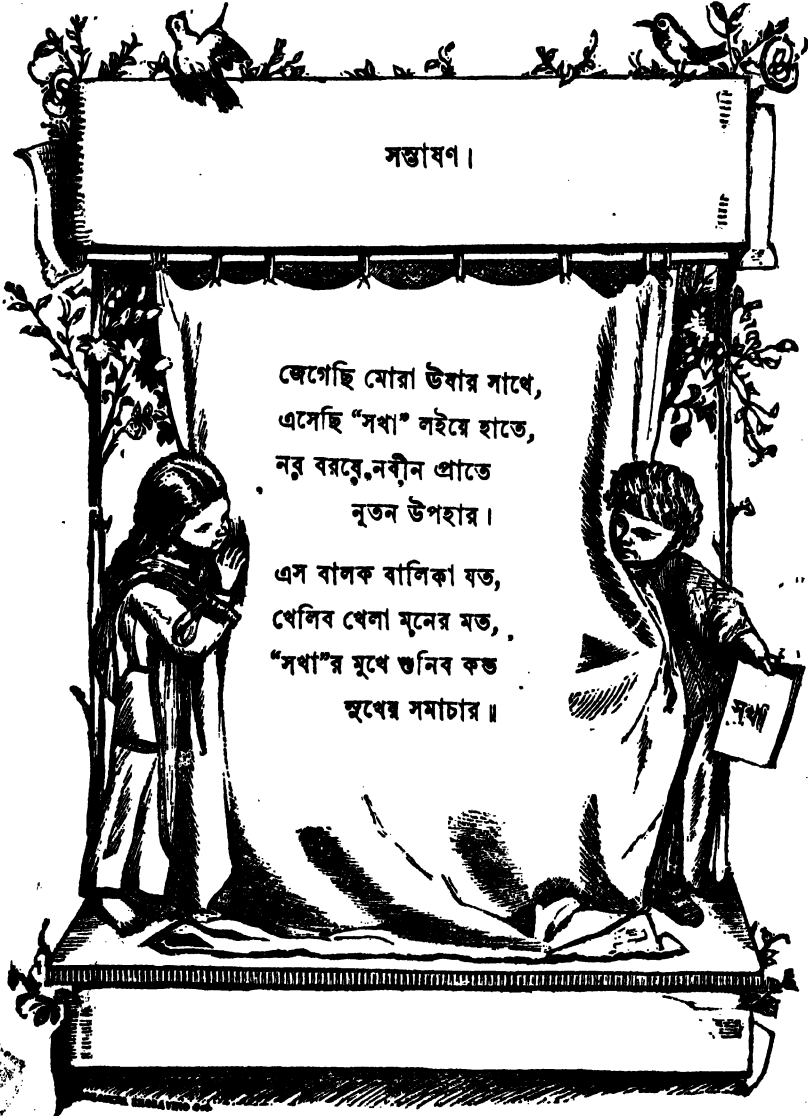 সম্ভাষণ।
জেগেছি মোরা ঊষার সাথে,
এসেছি “সখা” লইয়ে হাতে,
নব বরষে নবীন প্রাতে
নূতন উপহার।
এস বালক বালিকা যত,
খেলিব খেলা মনের মত,
“সখা”র মুখে শুনিব কত
সুখের সমাচার॥
সখা